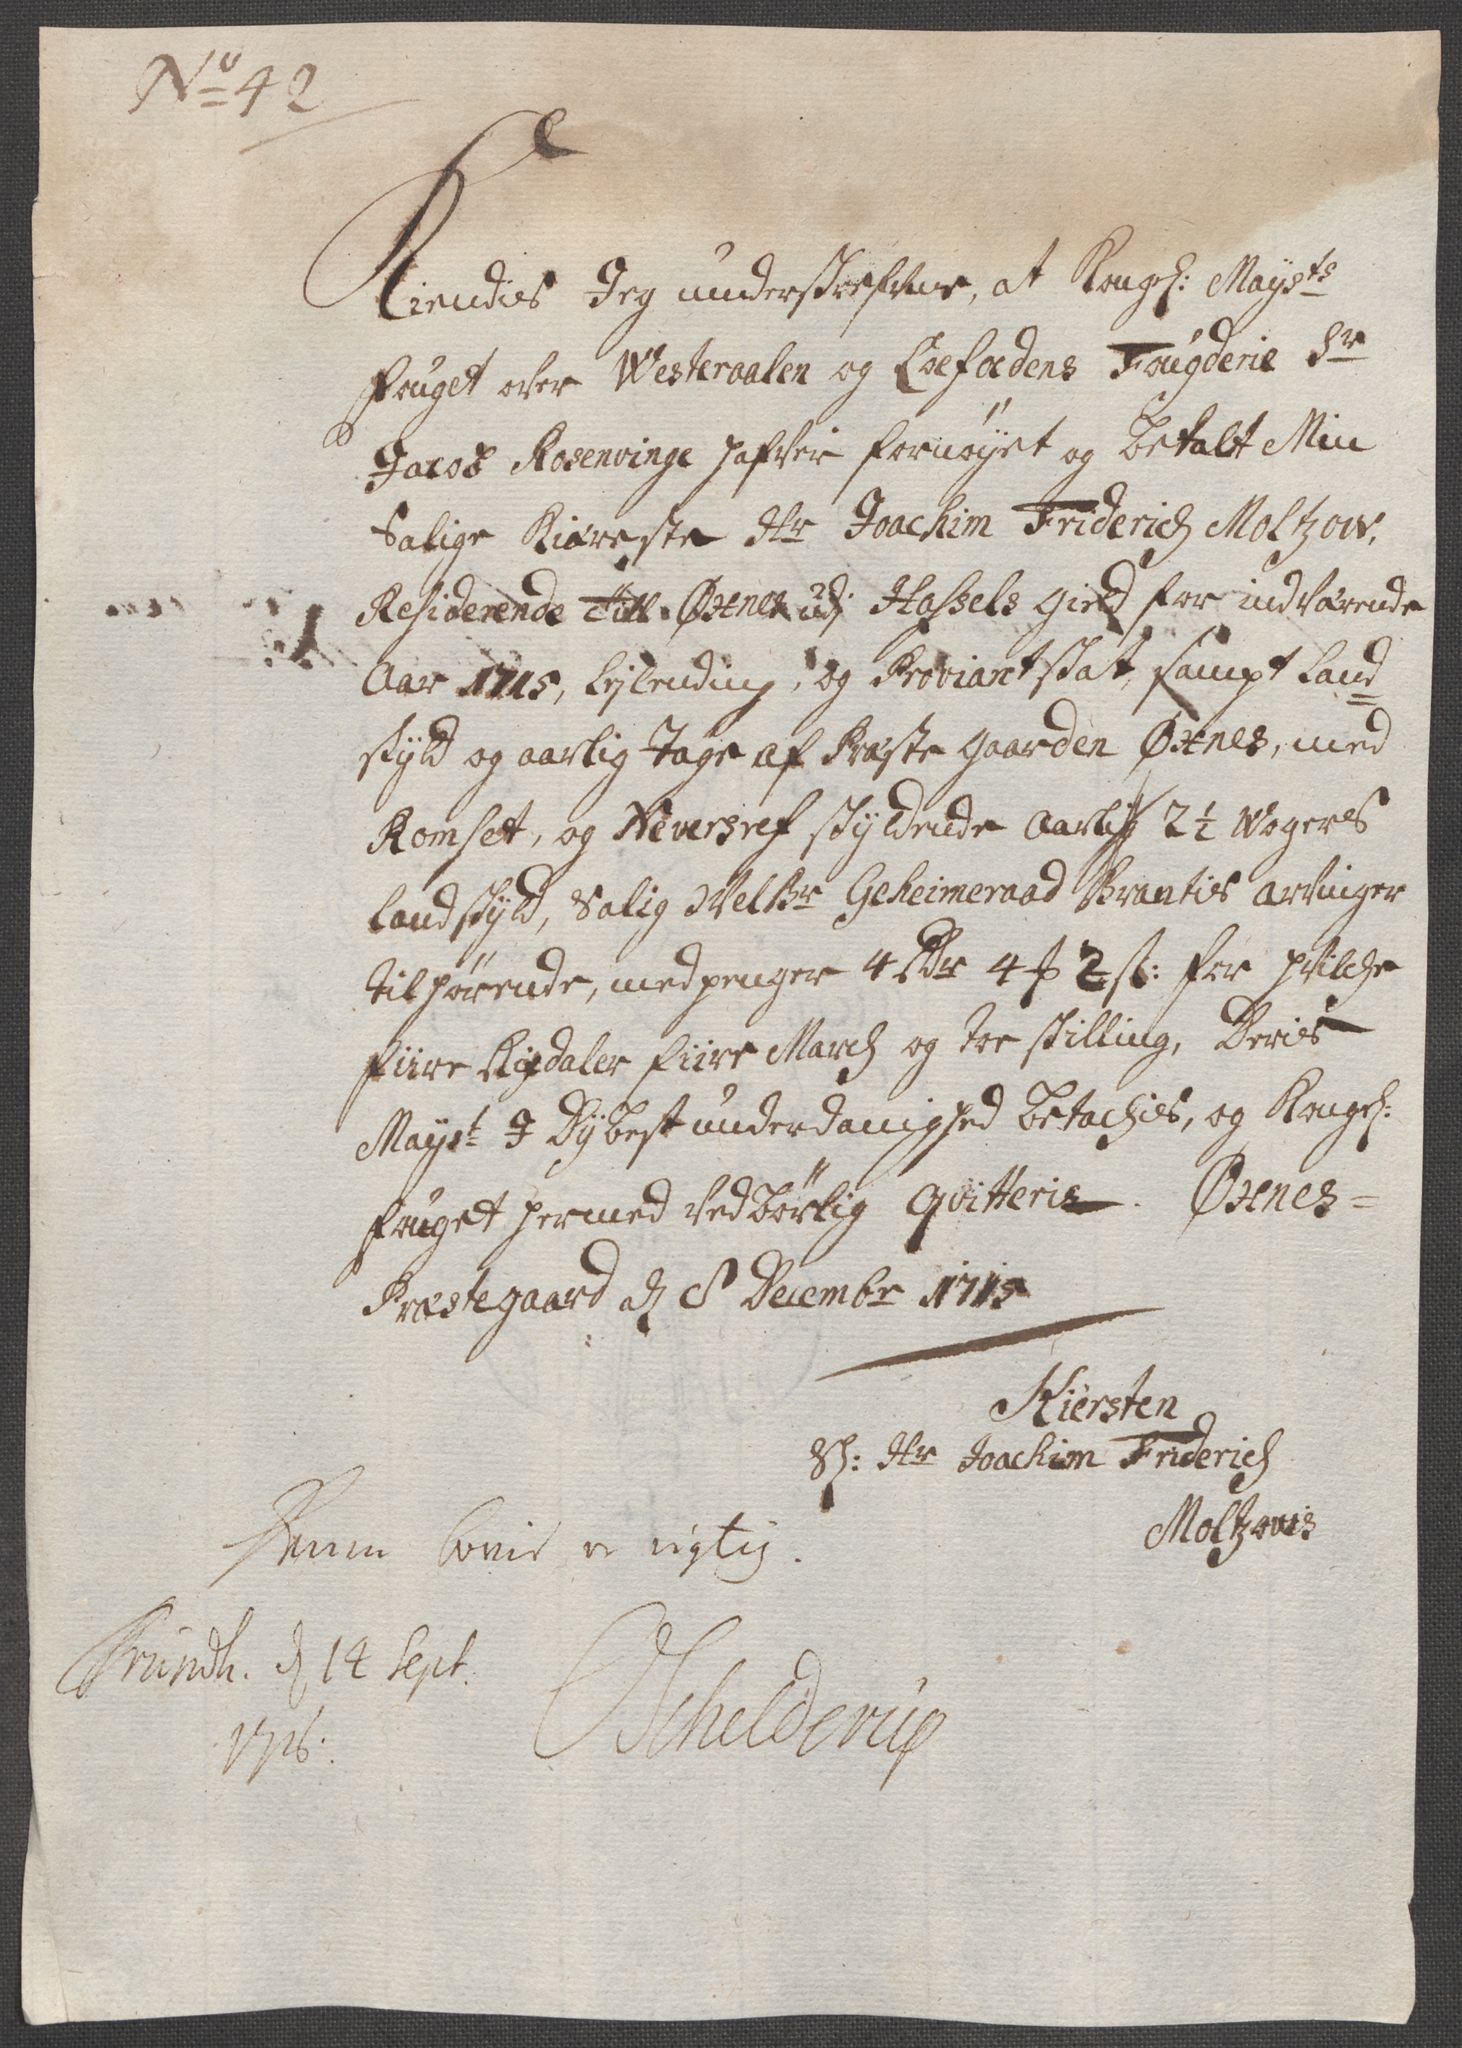 No 42
Kiendies Jeg underskrefvne, at Kongl: Mayts
fouget over Westeraalen og Loefodens Fougderie Sr
Jacob Rosenvinge hafver fornøyet og betalt Min
Salige Kiæreste Hr Joachim Friderich Moltzow,
Residerende Till Øxnes udj Hassels gield for indværende
Aar 1715, Leylending, og Proviant skat, sampt Land=
skyld og aarlig Tage af Præste gaarden Øxnes, med
Romset, og Neversref skyldende Aarlig 2½ Wogers
landskyld, Salig Velbr Geheimeraad Brantes arvinger
tilhørende, med penger 4 Rdr 4 ₰ 2 s: for hvilche
fiire Rigdaler fiire March og toe skilling, Deris
Mayst I Dybest underdanighed betachies, og Kongl:
fouget hermed vedbørlig Qvitteris. Øxnes=
Præstegaard d 8 Decembr 1715
Kiersten
Sl: Hr Joachim Friderich
Moltzows
Denne Copie er rigtig.
Trundh. d 14 Sept.
1716.
Schelderup